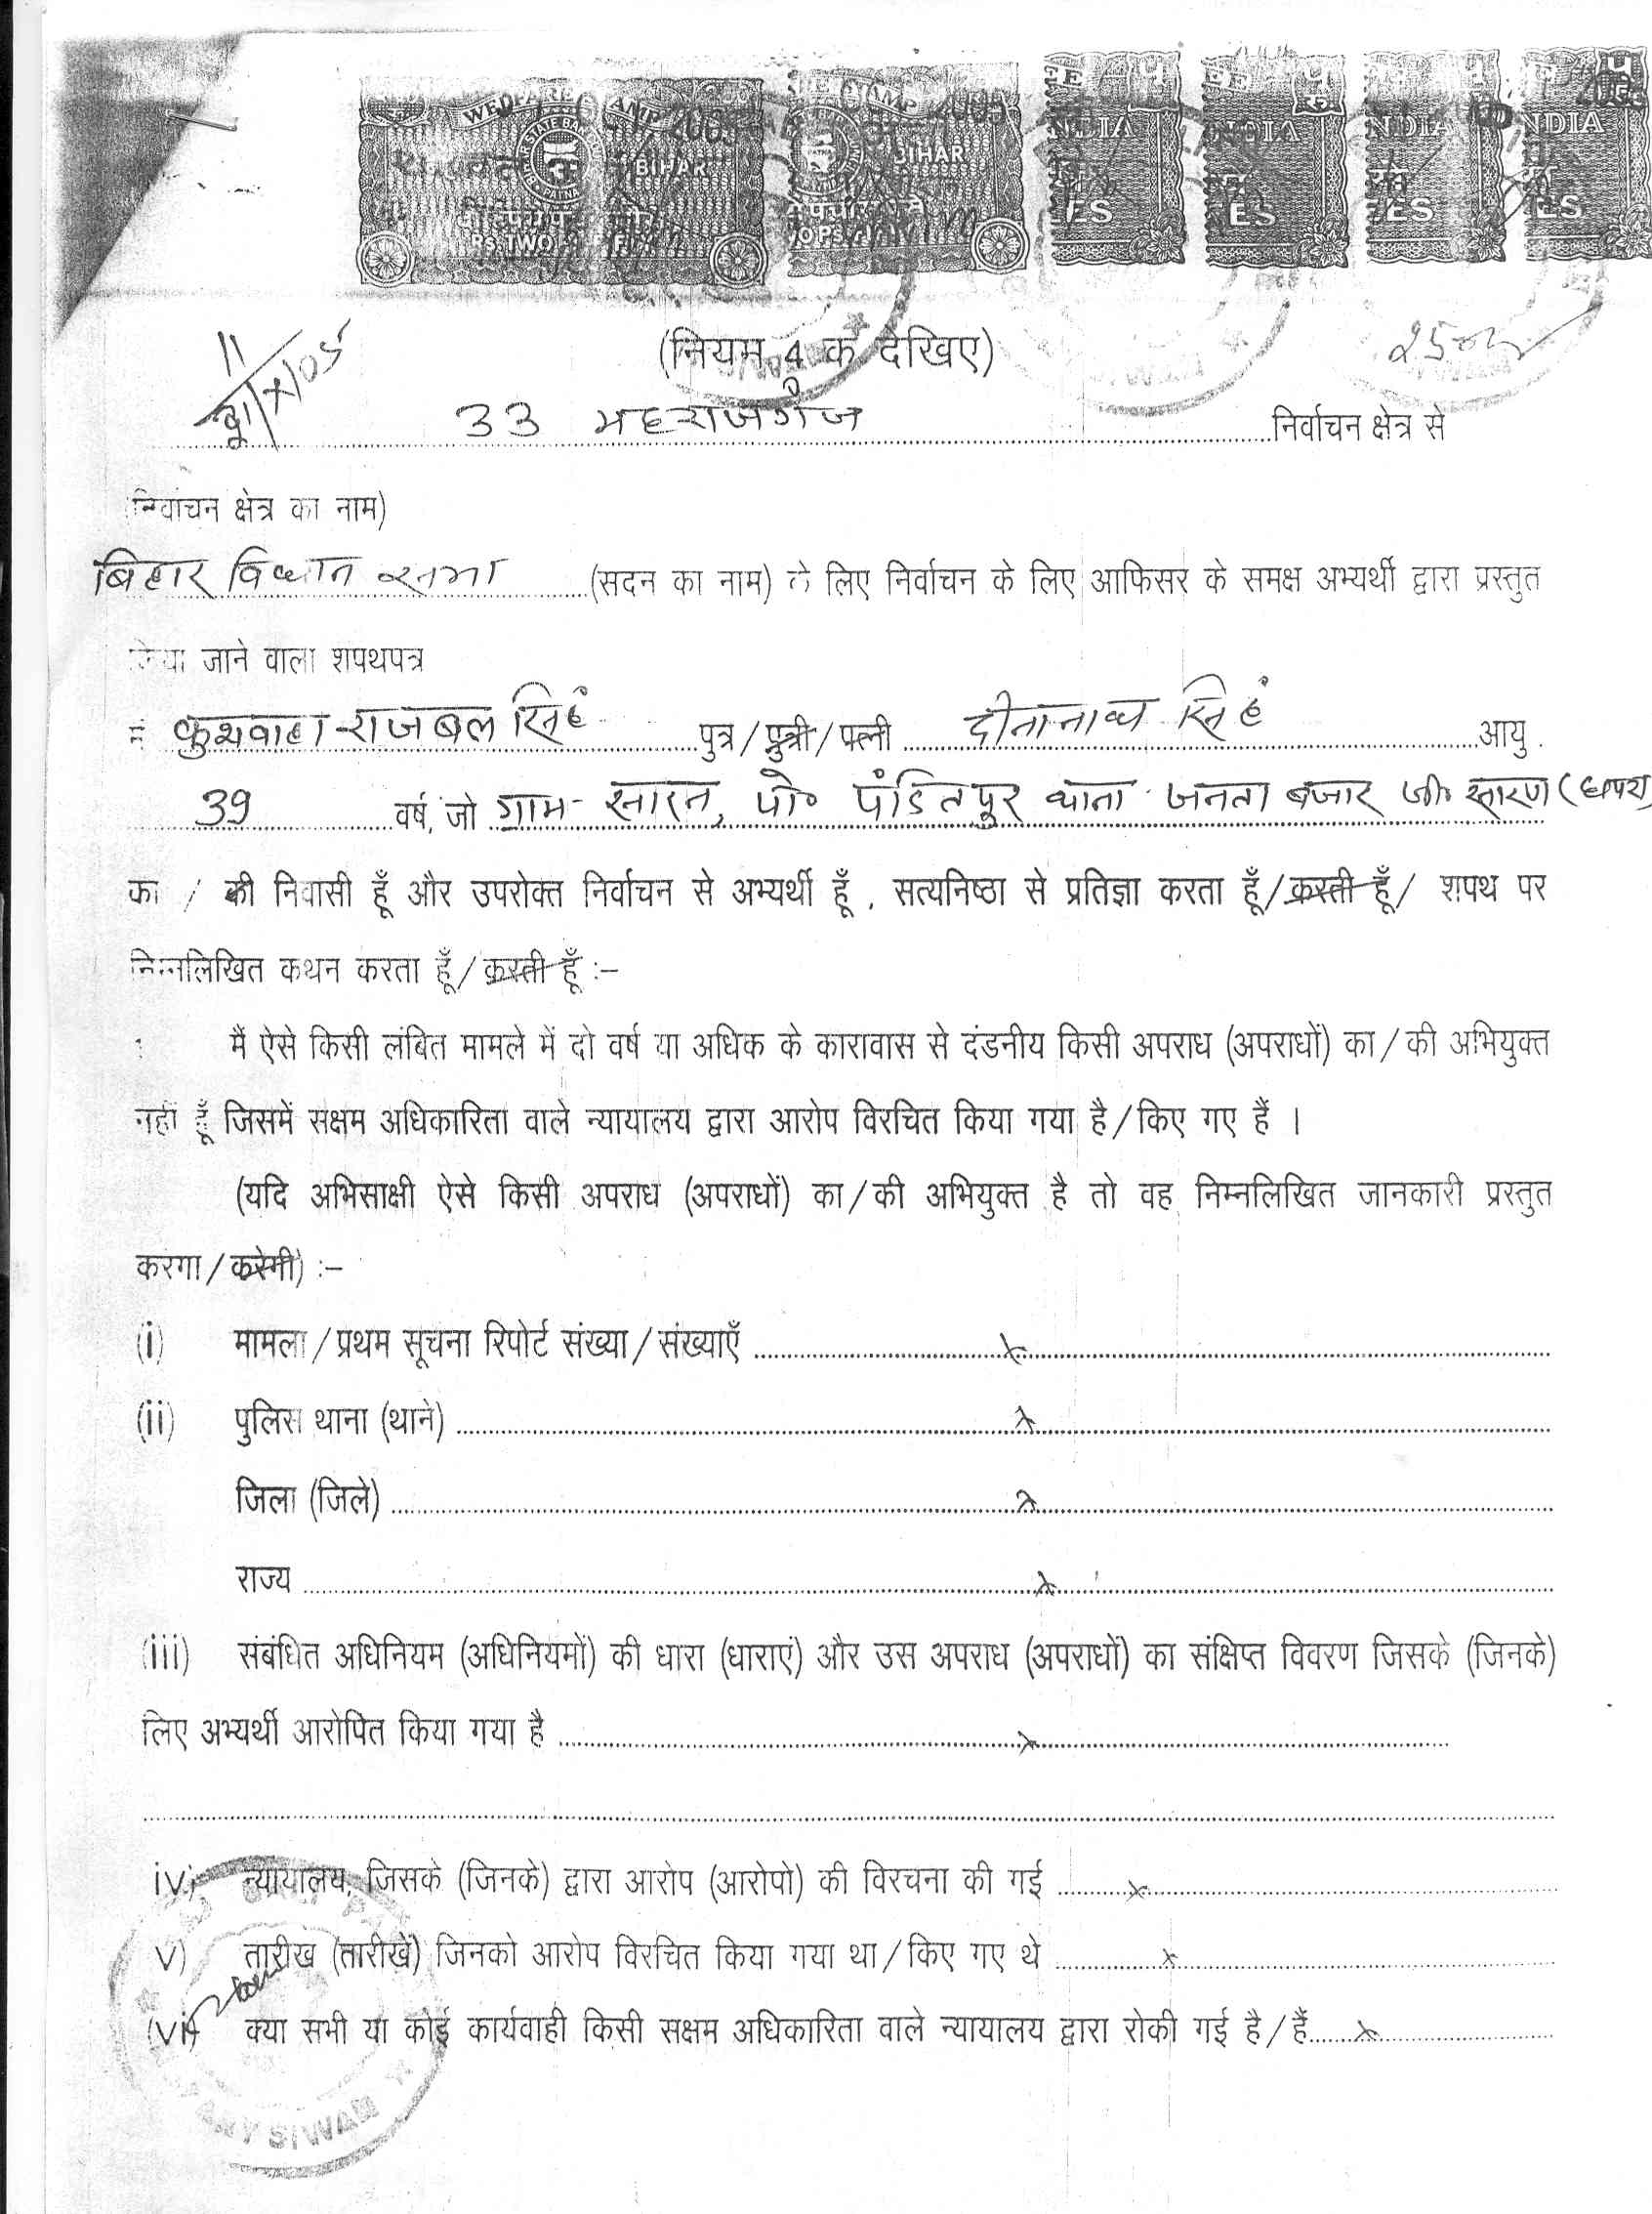 WELFARE STAMP 2005
BIHAR
Rs. TWO
BIHAR
INDIA
INDIA
INDIA
INDIA
(नियम 4 क देखिए)
33 महराजगंज निर्वाचन क्षेत्र से
(निर्वाचन क्षेत्र का नाम)
बिहार विधान सभा (सदन का नाम) के लिए निर्वाचन के लिए आफिसर के समक्ष अभ्यर्थी द्वारा प्रस्तुत
किया जाने वाला शपथपत्र
मैं कुशवाहा राजबल सिंह पुत्र/पुत्री/पत्नी दीनानाथ सिंह आयु
39 वर्ष, जो ग्राम- सारन, पो० पंडितपुर थाना जनता बजार जि० सारण (छपरा)
का / की निवासी हूँ और उपरोक्त निर्वाचन से अभ्यर्थी हूँ , सत्यनिष्ठा से प्रतिज्ञा करता हूँ/करती हूँ/ शपथ पर
निम्नलिखित कथन करता हूँ/करती हूँ :–
मैं ऐसे किसी लंबित मामले में दो वर्ष या अधिक के कारावास से दंडनीय किसी अपराध (अपराधों) का/की अभियुक्त
नहीं हूँ जिसमें सक्षम अधिकारिता वाले न्यायालय द्वारा आरोप विरचित किया गया है/किए गए हैं ।
(यदि अभिसाक्षी ऐसे किसी अपराध (अपराधों) का/की अभियुक्त है तो वह निम्नलिखित जानकारी प्रस्तुत
करगा/करेगी) :–
(i) मामला/प्रथम सूचना रिपोर्ट संख्या/संख्याएँ x
(ii) पुलिस थाना (थाने) x
जिला (जिले) x
राज्य x
(iii) संबंधित अधिनियम (अधिनियमों) की धारा (धाराएं) और उस अपराध (अपराधों) का संक्षिप्त विवरण जिसके (जिनके)
लिए अभ्यर्थी आरोपित किया गया है x
iv) न्यायालय, जिसके (जिनके) द्वारा आरोप (आरोपो) की विरचना की गई x
v) तारीख (तारीखें) जिनको आरोप विरचित किया गया था/किए गए थे x
(vi) क्या सभी या कोई कार्यवाही किसी सक्षम अधिकारिता वाले न्यायालय द्वारा रोकी गई है/हैं x
SIWAN